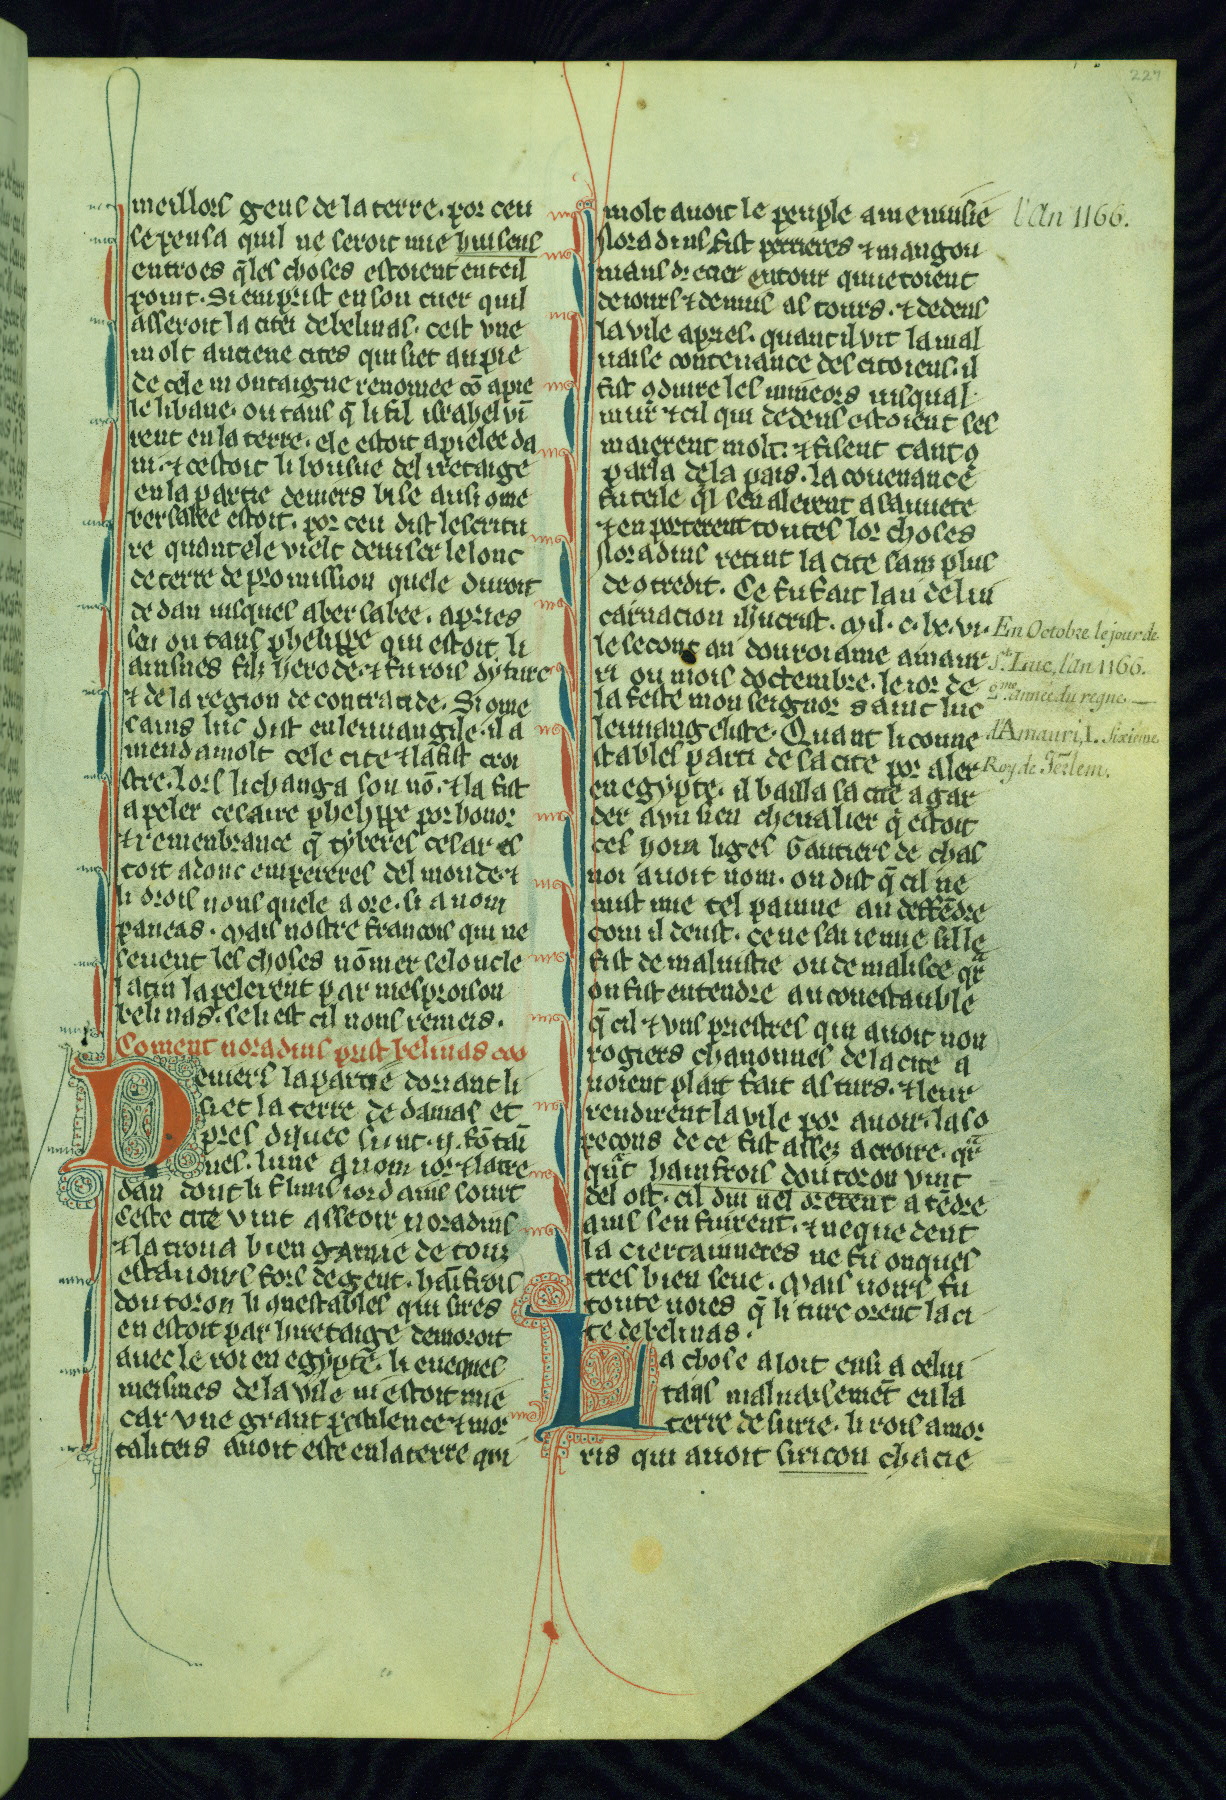 227
meillors gens de la terre. por ceu
se pensa quil ne seroit mie huiseus
entroes q̃ les choses estoient en teil
point. Si emprist en son cuer quil
asseroit la citei de belinas. cest vne
molt anciene cites qui siet au pie
de cele montaigne renomee cō apie
le libane. ou tans q̃ li fil israhel vī
rent en la terre. ele estoit apielee da
in. ⁊ cestoit li bousne del iretaige
en la partie deuiers bise ausi ome
bersabee estoit. por ceu dist lescritu
re quant ele vielt deuiser le lonc
de terre de promission quele duroit
de dan iusques a bersabee. apries
ceu ou tans phelippe qui estoit li
ainsnes filz herode. ⁊ fu rois dyture
⁊ de la region de contracide. Si ome
sains luc dist en leuuangile. il a
menda molt cele cite ⁊ la fist croi
stre. lors li changa son nō. ⁊ la fist
apeler cesaire phelippe por honor
⁊ remenbrance q̃ tyberes cesar es
toit adonc empereres del monde. ⁊
li drois nons quele a ore. si a nom
paneas. Mais nostre francois qui ne
seuent les choses nōmer selonc le
latin lapelerent par mesproison
belinas. se li est cil nons remeis.
Coment noradins prist belinas
Deuiers la partie doriant li
siet la terre de damas et
pres diquec sunt .ij. fōtai
nes. lune a nom ior. ⁊ latre
dan dont li fluns iordains sourt
Ceste cite vint asseoir noradins
⁊ la troua bien garnie de tour
estauoirs fors de gent. haīfrois
dou toron li ꝯnestables qui sires
en estoit par hiretaige demoroit
auec le roi en egypte. li euesques
meismes de la vile ni estoit mie
car vne grant pestilence ⁊ mor
taliteis auoit este en la terre qui
molt auoit le peuple amenusie
Noradins fist perrieres ⁊ mangon
niaus drecier entour qui ietoient
de iours ⁊ de nuis as tours. ⁊ dedens
la vile apries. quant il vit la mal
uaise contenance des citoiens. il
fist ꝯduire les mineors iusqual
mur ⁊ cil qui dedens estoient ses
maierent molt. ⁊ fisent tant ꝯ
parla de la pais. la couenance
fu teile q̃l sen alerent a sauuete
⁊ en porterent toutes lor choses
Noradins retint la cite sanz plus
de ꝯtredit. Ce fu fait lan de lin
carnacion ihucrist. M. c. lx. vi.
le second an dou roiame amaur
ri ou mois doctembre. le ior de
la feste mon seignor saint luc
leuuangeliste. Quant li conne
stables parti de sa cite por aler
en egypte. il bailla sa cite a gar
der a vn sien cheualier q̃ estoit
ces hom liges Gautiers de chas
noi auoit nom. on dist q̃ cil ne
mist mie tel painne au deffēdre
com il deust. ce ne sai ie mie sil le
fist de mauuistie ou de malisce q̃r
on fist entendre au conestauble
q̃ cil ⁊ vns priestres qui auoit non
rogiers chanonnes de la cite a
uoient plait fait as turs. ⁊ leur
rendirent la vile por auoir. la so
pecons de ce fist assez a croire. q̃r
q̃nt hainfrois dou toron vint
del ost. cil dui nel oserent atēdre
ains sen fuirent. ⁊ ne que dent
la ciertainnetes ne fu onques
tres bien seue. Mais voirs fu
toute voies q̃ li turc orent la ci
te de belinas.
La chose aloit ensi a celui
tans maluaisemēt en la
terre de surie. li rois amor
ris qui auoit siricon chacie
l'An 1166.
En Octobre le jour de
S.t Luc, l'an 1166.
2.me année du regne
d'Amauri, I. sixieme
Roy de Jerlem.